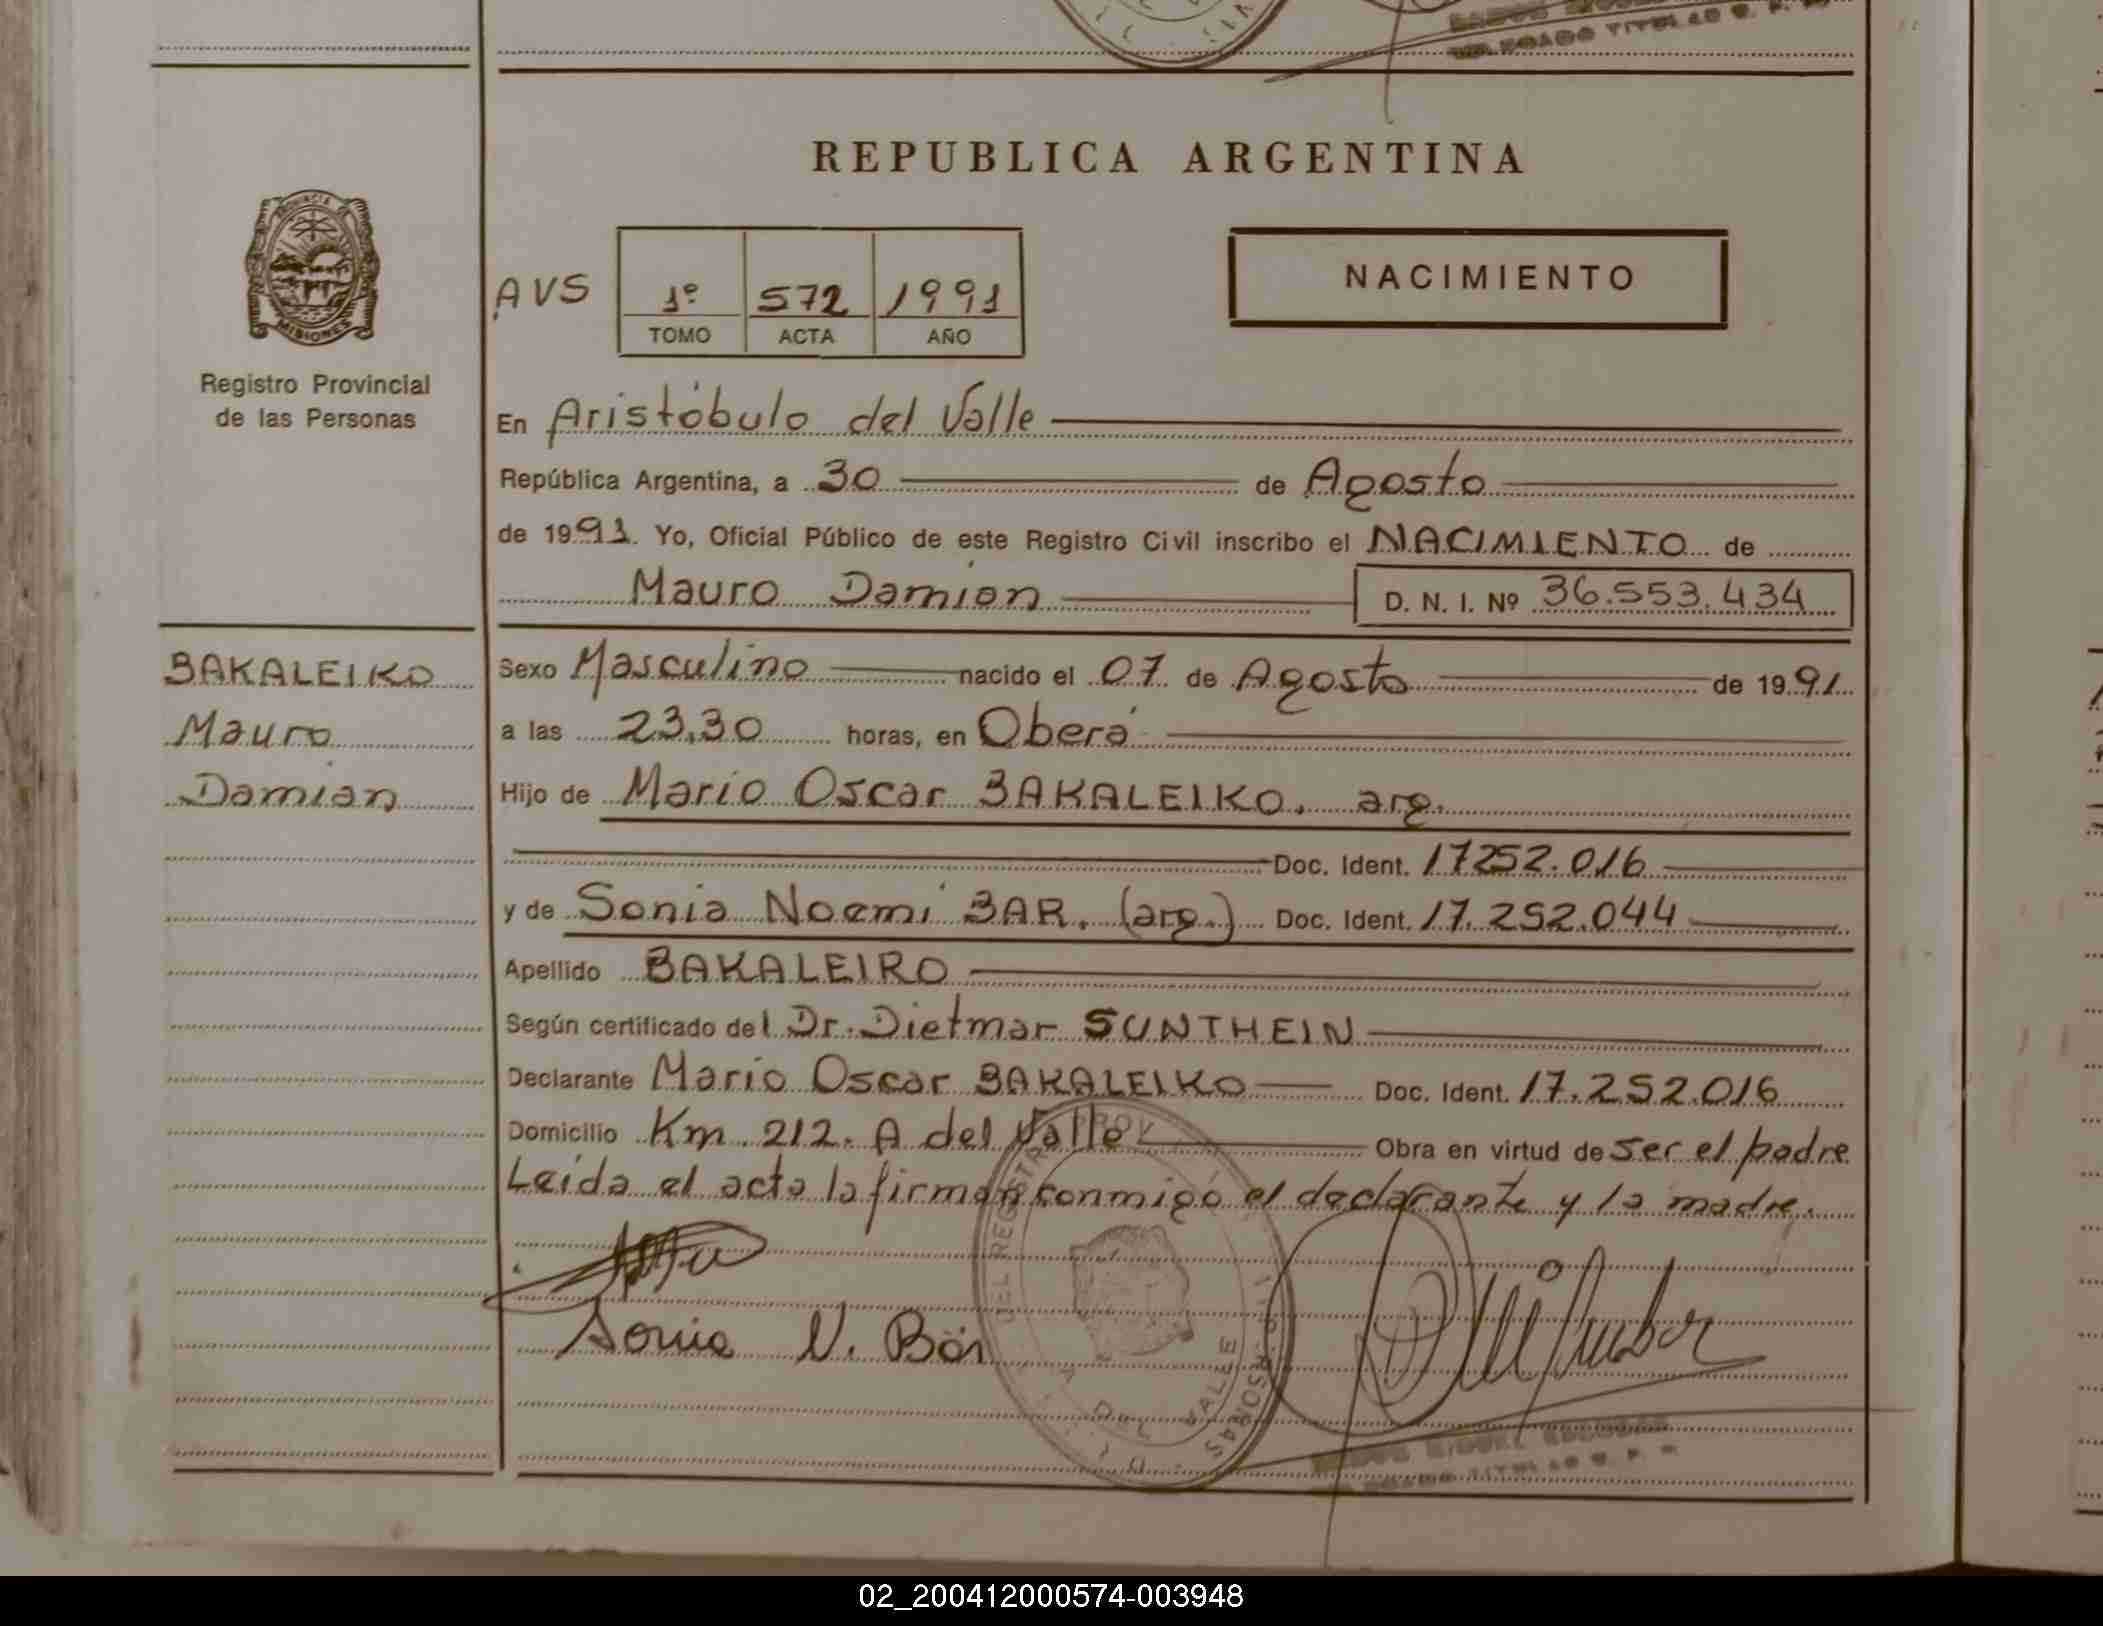 REPUBLICA ARGENTINA
PROVINCIA DE
MISIONES
Registro Provincial
de las Personas
AVS
1º 572 1991
TOMO ACTA AÑO
NACIMIENTO
En Aristóbulo del Valle
República Argentina, a 30 de Agosto
de 1991. Yo, Oficial Público de este Registro Civil inscribo el NACIMIENTO de
Mauro Damián D. N. I. Nº 36.553.434
BAKALEIKO
Mauro
Damián
Sexo Masculino nacido el 07 de Agosto de 1991
a las 23,30 horas, en Oberá
Hijo de Mario Oscar BAKALEIKO. arg.
Doc. Ident. 17252.016
y de Sonia Noemí BAR. (arg.) Doc. Ident. 17.252.044
Apellido BAKALEIRO
Según certificado del Dr. Dietmar SUNTHEIN
Declarante Mario Oscar BAKALEIKO Doc. Ident. 17.252.016
Domicilio Km 212. A del Valle Obra en virtud de ser el padre
Leída el acta la firman conmigo el declarante y la madre.
Sonia N. Bär
DEL VALLE
02_200412000574-003948